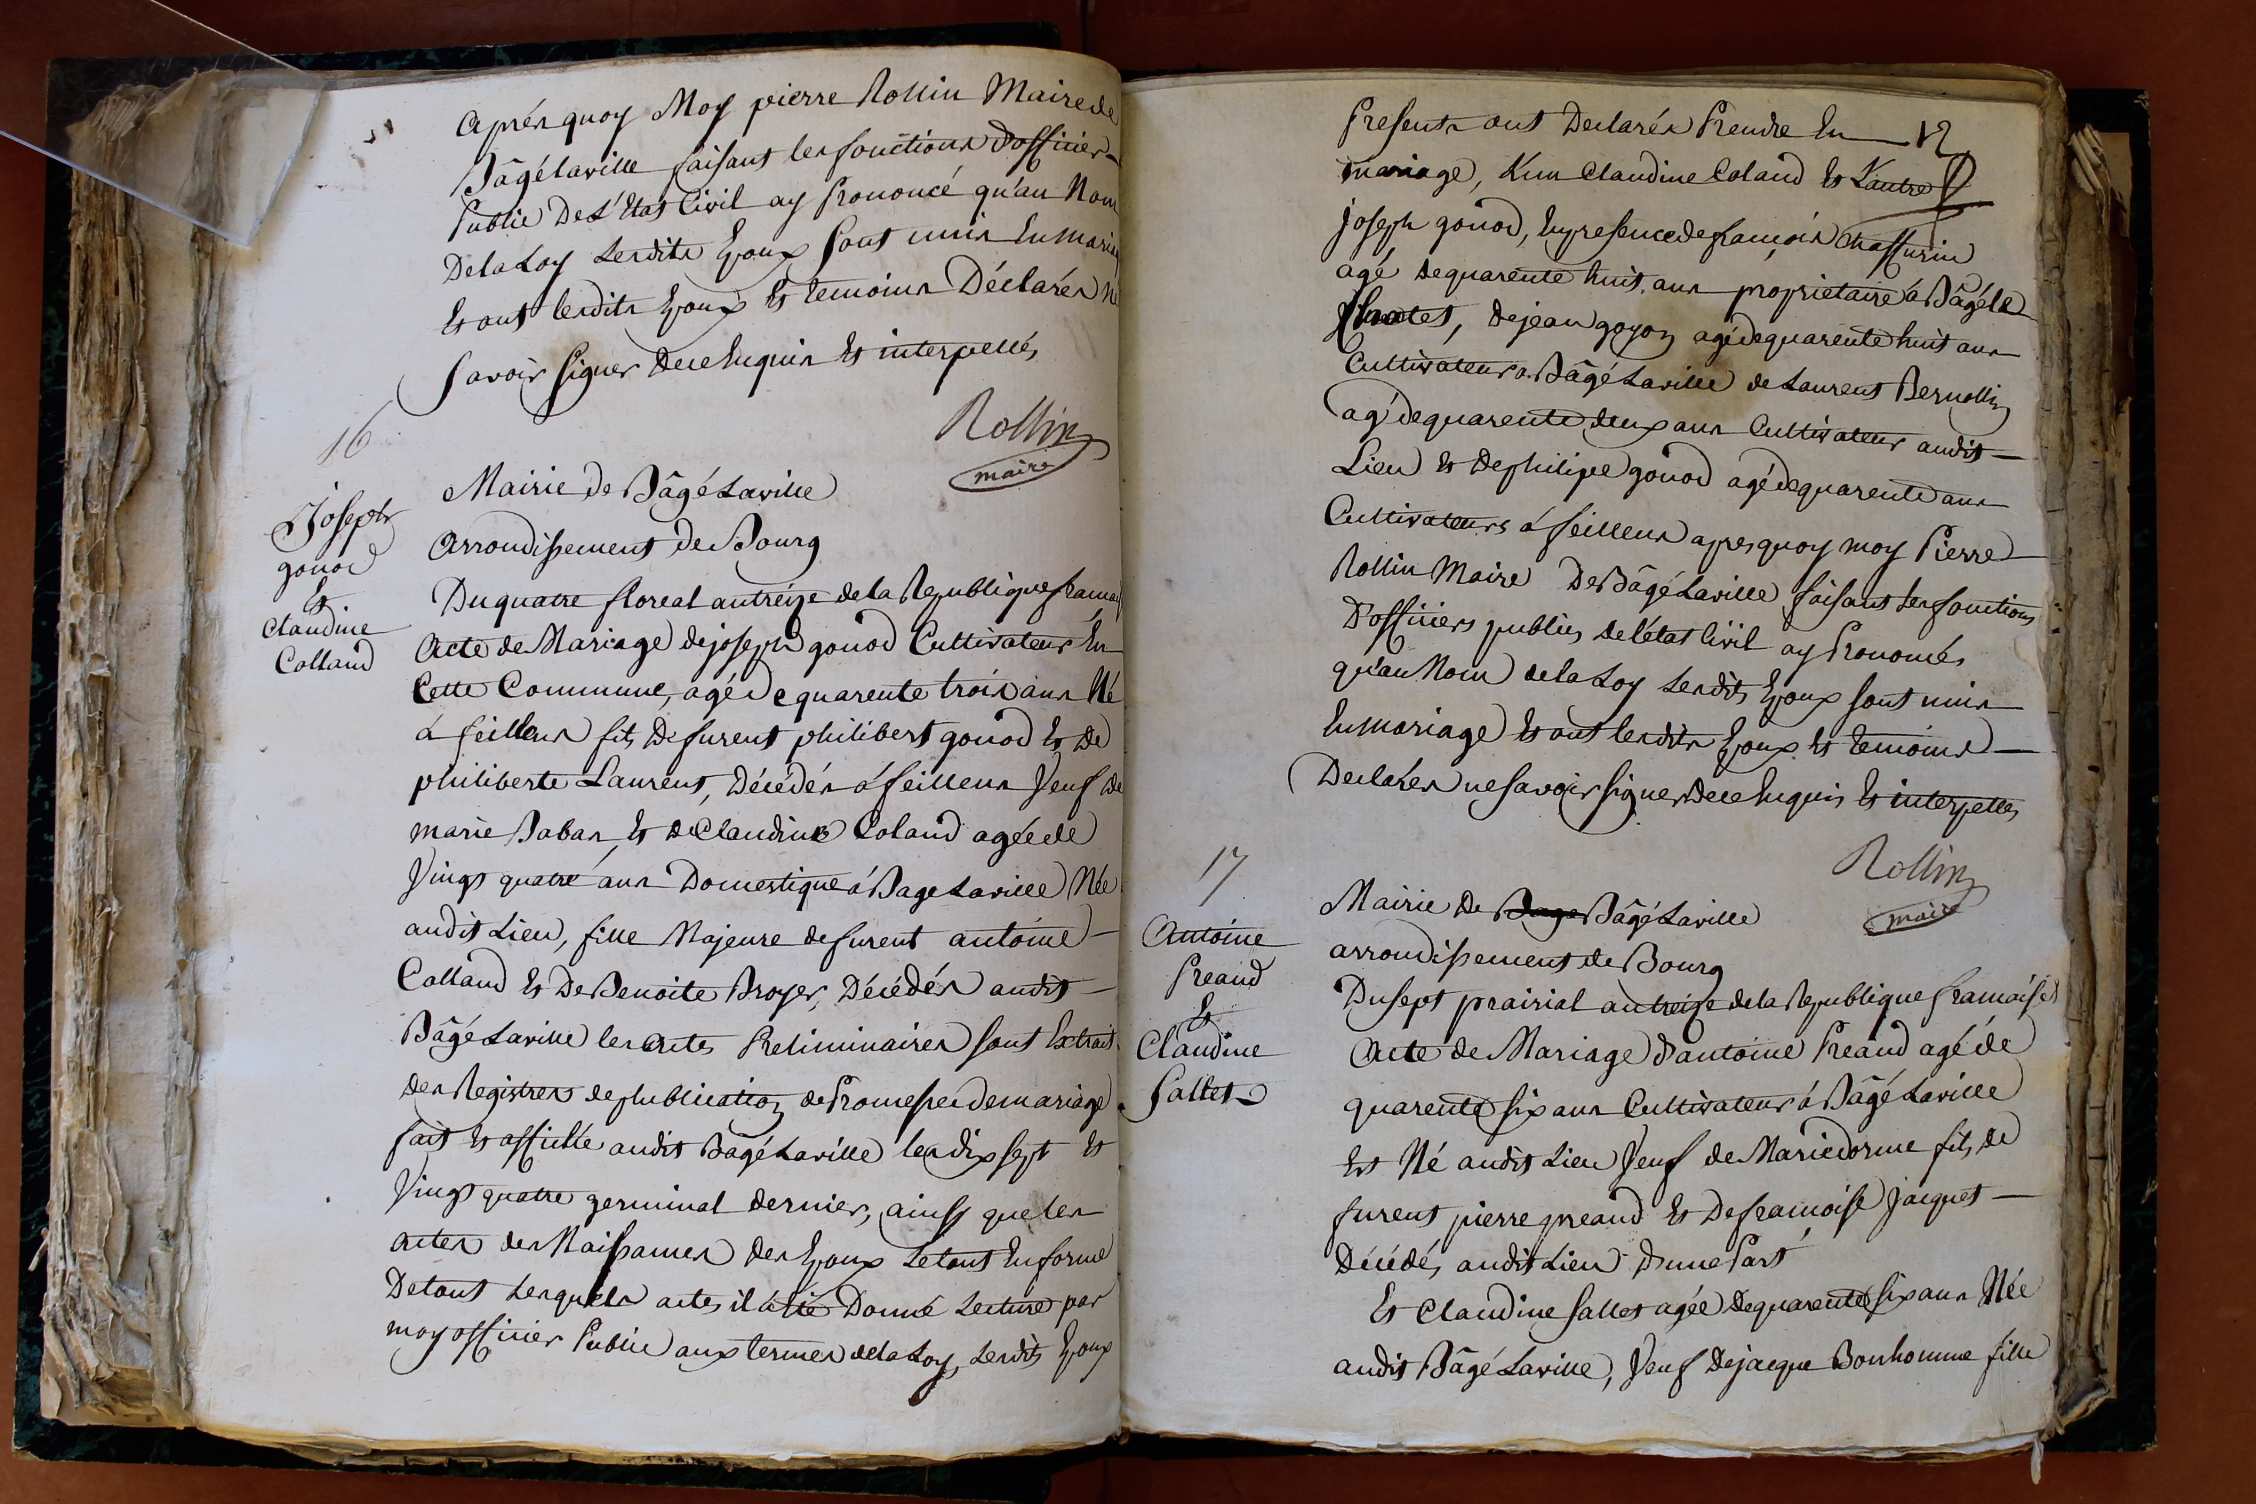 aprés quoy Moy pierre Rollin Maire de
Bâgé laville faisant les fonctions d'officier
Public De L'Etat Civil ay Prononcé qu'au Nom
De la Loy Lesdits Epoux sont unis En Mariag
Et ont lesdits Epoux Et temoins Déclarés Ne
savoir signer de ce Enquis Et interpellés
Rollin
maire
16
Joseph
gonod
Et
Claudine
Colland
Mairie de Bâgé Laville
arrondissement de Bourg
Du quatre floreal an treize de la Republique francais
acte de Mariage de joseph gonod Cultivateur En
Cette Commune, agé de quarente trois ans Né
á feillens fils De furent philibert gonod Et De
philiberte Laurent, Décédés á feillens Veuf de
marie Baban Et de Claudine Coland agée de
Vingt quatre ans Domestique á Bage Laville Née
audit Lieu, fille Majeure de furent antoine
Colland Et De Benoite Broyer, Décédés audit
Bâgé Laville les actes Preliminaires sont Extrait
des Registres de publication de Promesses de mariage
fait Et affiché audit Bagé Laville les dix sept Et
Vingt quatre germinal dernier, ainsy que les
actes des Naissances des Epoux Le tout En forme
De tout Lesquels actes il á été Donné Lecture par
moy officier Public aux termes de la Loy, Lesdits Epoux
12
Presents ont Declarés Prendre En
mariage, L'un Claudine Coland Et L'autre
joseph gonod, En presence de françois Chaffurin
agé de quarente huit ans propriétaire á Bâgé le
Chatel, de jean goyon agé de quarente huit ans
Cultivateur á Bâgé Laville de Laurent Bernollin
agé de quarente deux ans Cultivateur audit
Lieu Et De philipe gonod agé de quarente ans
Cultivateurs á feillens apres quoy moy Pierre
Rollin Maire De Bâgé Laville faisant Les fonctions
D'officiers publics de L'état Civil ay Prononcés
qu'au Nom de la Loy Lesdits Epoux sont unis
En mariage Et ont lesdits Epoux Et temoins
Declarés ne savoir signer de ce Enquis Et interpellés
Rollin
maire
17
Antoine
Preaud
Et
Claudine
Sallet
Mairie de Bage Bâgé Laville
arrondissement de Bourg
Du sept prairial an treize de la Republique française
Acte de Mariage d'antoine Preaud agé de
quarente six ans Cultivateur á Bâgé Laville
Et Né audit Lieu Veuf de Marie dorme fils de
furent pierre preaud Et De françoise Jacquet
Décédés audit Lieu D'une Part
Et Claudine Sallet agée de quarente six ans Née
audit Bâgé Laville, Veuf De jacque Bonhomme fille